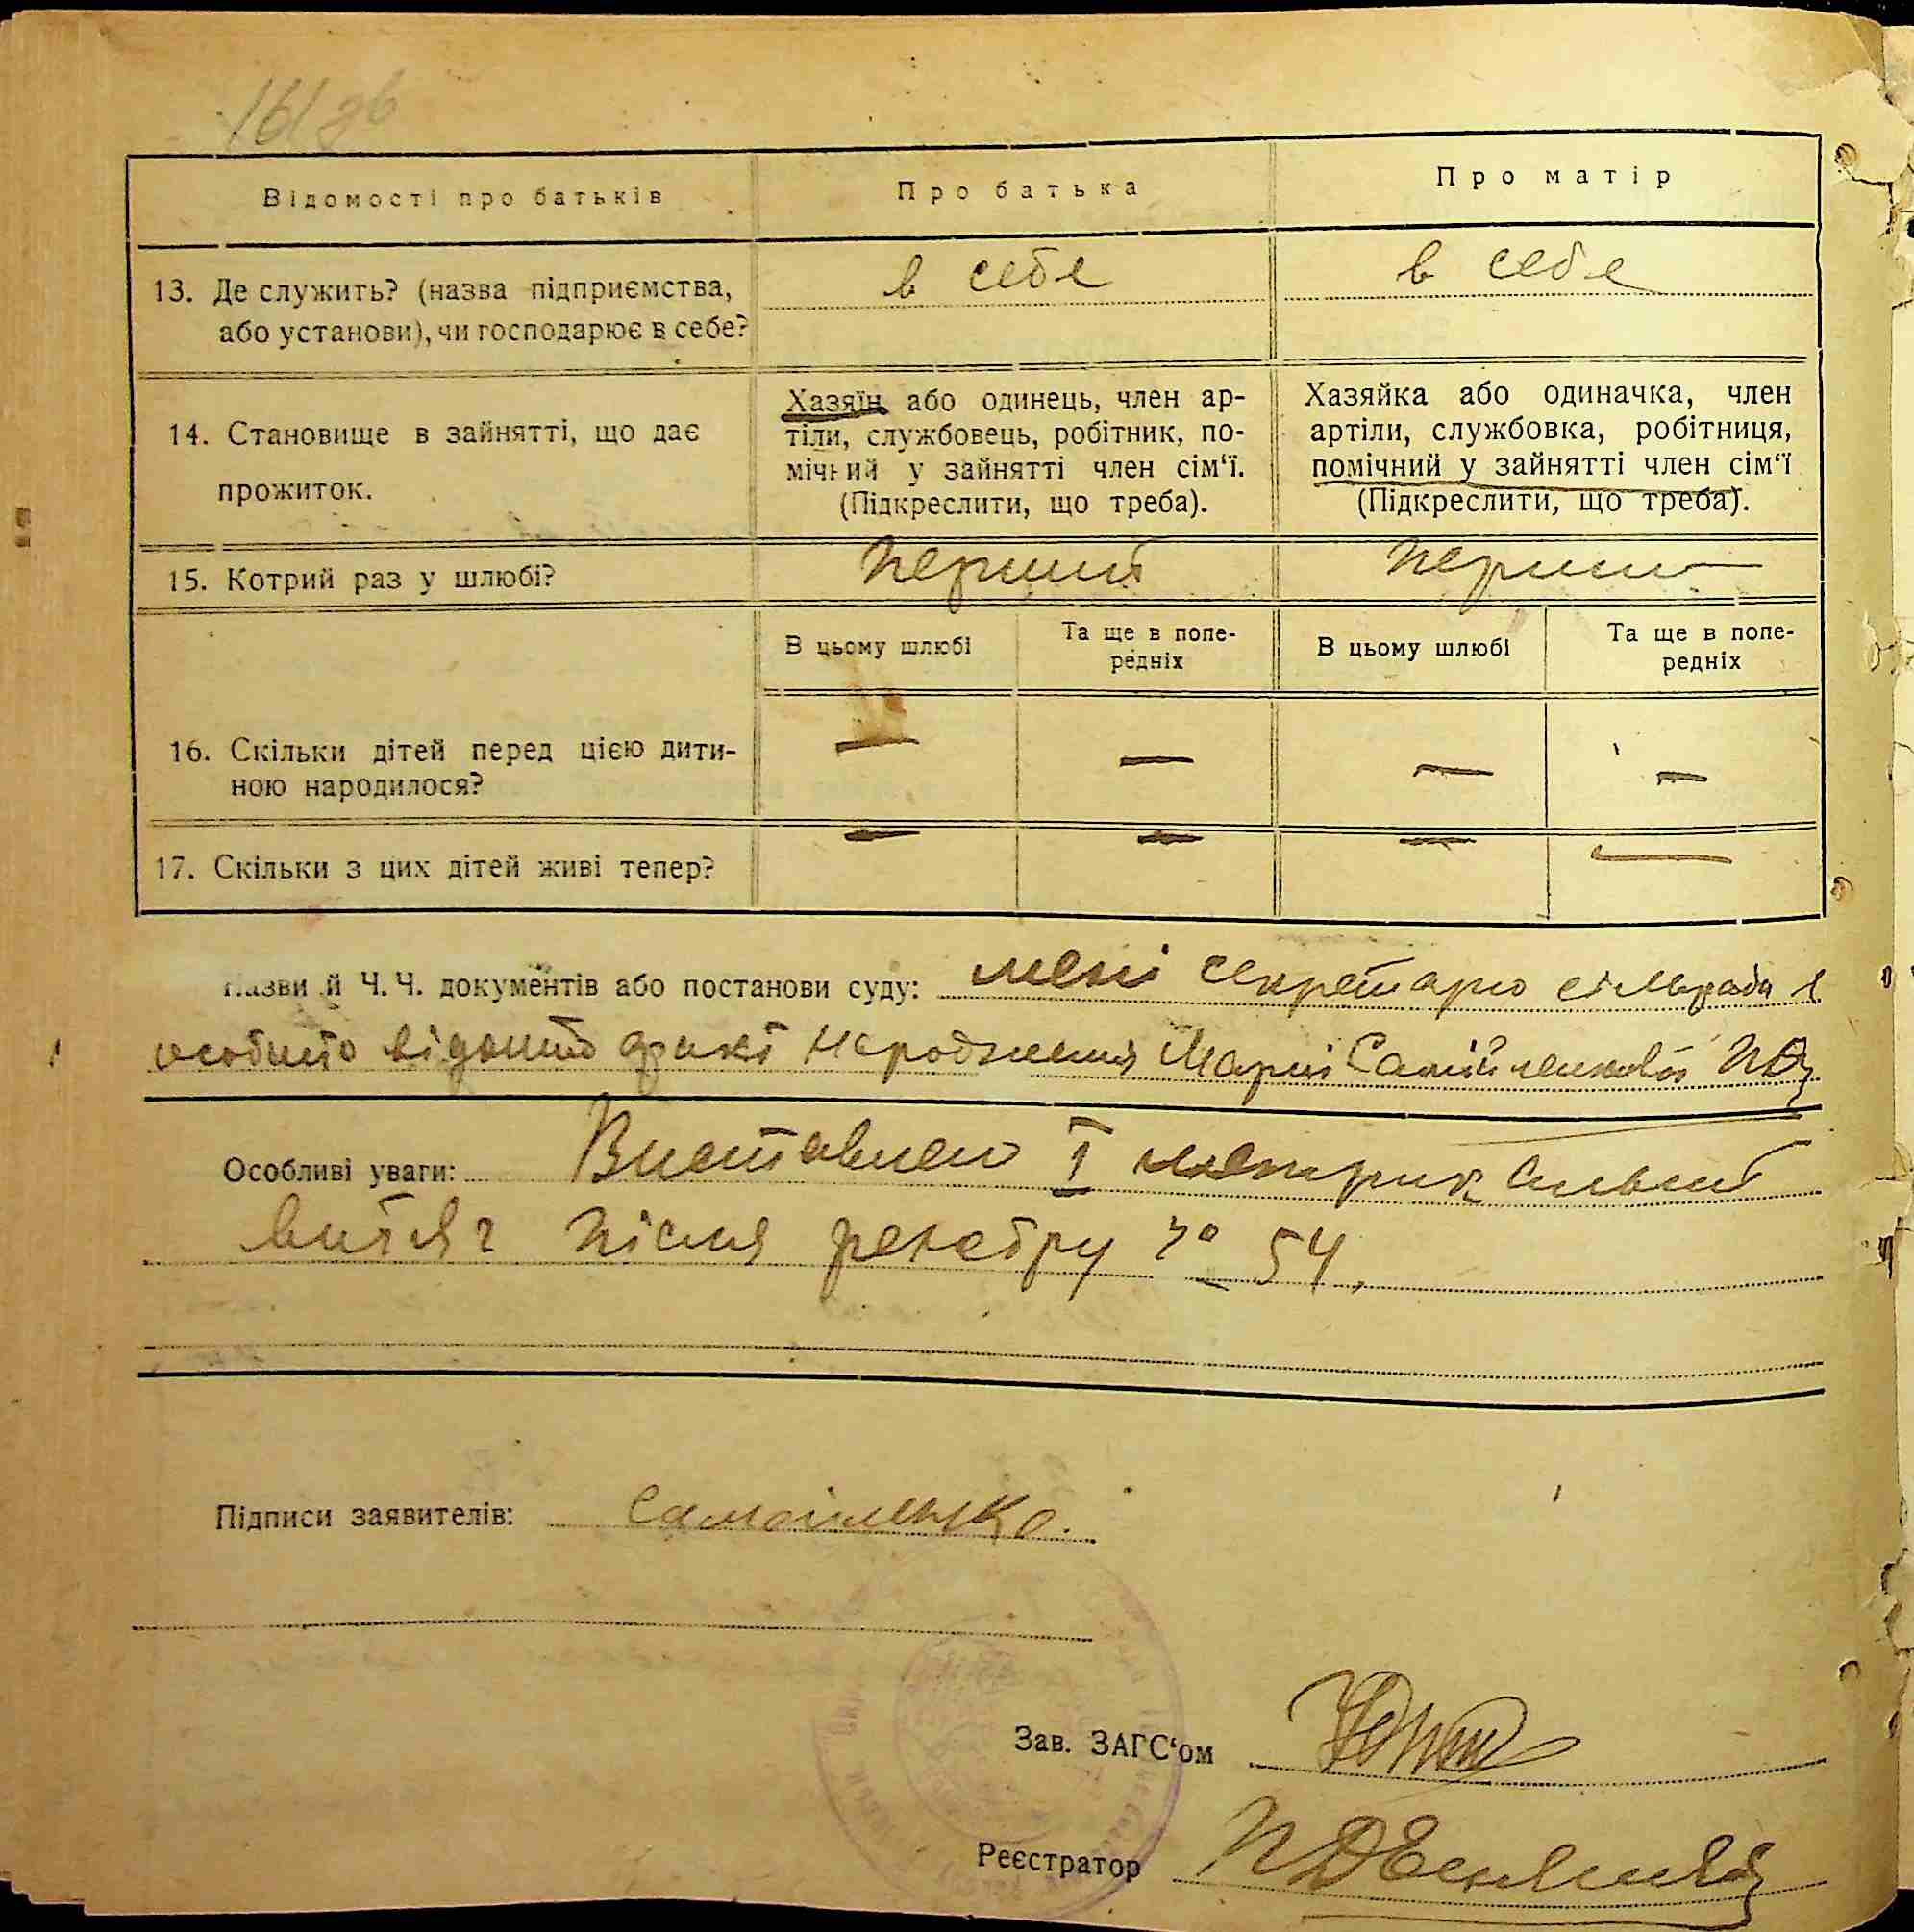 161 зв
Відомості про батьків
Про батька
Про матір
13. Де служить? (назва підприємства,
або установи), чи господарює в себе?
в себе
в себе
14. Становище в зайнятті, що дає
прожиток.
Хазяїн або одинець, член ар-
тіли, службовець, робітник, по-
мічний у зайнятті член сім‘ї.
(Підкреслити, що треба).
Хазяйка або одиначка, член
артіли, службовка, робітниця,
помічний у зайнятті член сім‘ї
(Підкреслити, що треба).
15. Котрий раз у шлюбі?
перший
перший
В цьому шлюбі
Та ще в попе-
редніх
В цьому шлюбі
Та ще в попе-
редніх
16. Скільки дітей перед цією дити-
ною народилося?
— — — —
17. Скільки з цих дітей живі тепер?
— — — —
Назви й Ч.Ч. документів або постанови суду: мені секретарю сільради
особисто відомий факт народження Марії Самійленкової
Особливі уваги: Виставлено 1 метрикальний
витяг після реєстру № 54,
Підписи заявителів: Самойленко.
Зав. ЗАГС‘ом
Реєстратор